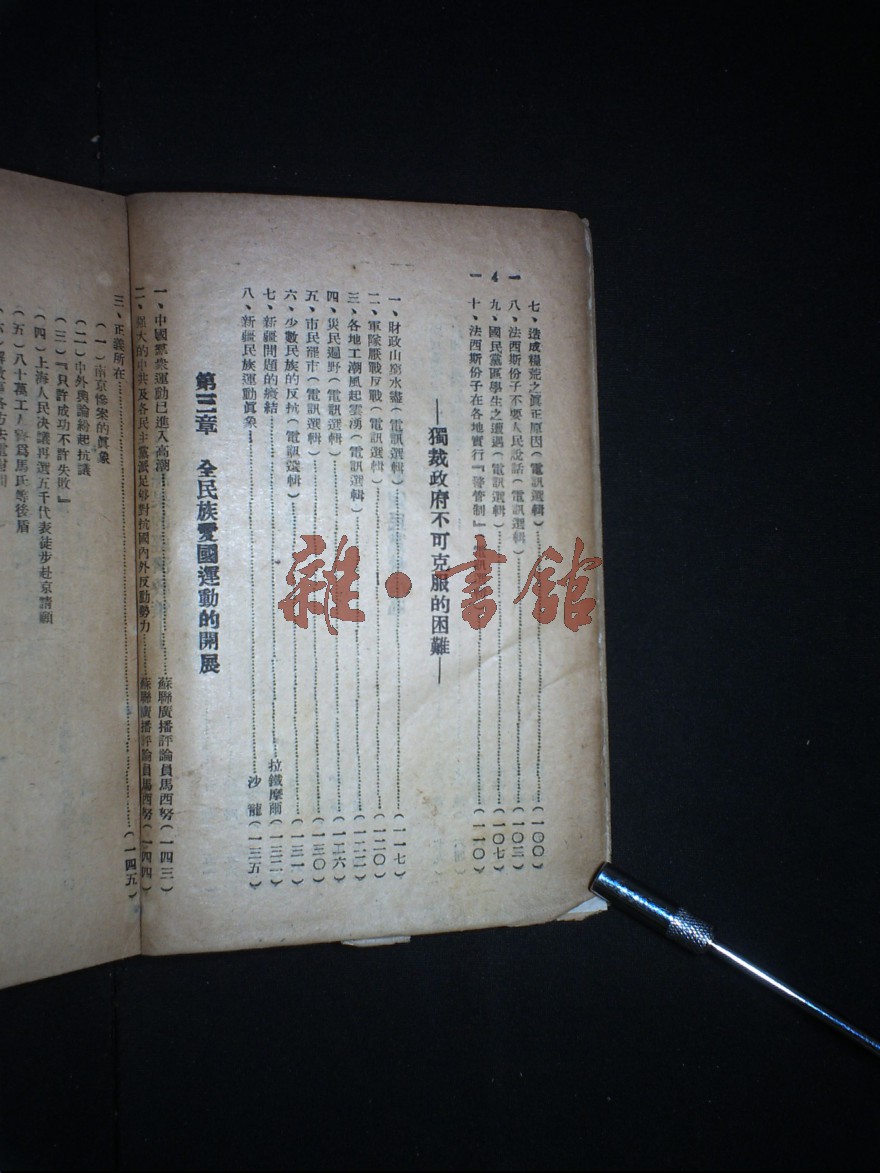 — 4 —
七、造成糧荒之眞正原因(電訊選輯)………(一〇〇)
八、法西斯份子不要人民說話(電訊選輯)………(一〇三)
九、國民黨區學生之遭遇(電訊選輯)………(一〇七)
十、法西斯份子在各地實行『警管制』………(一一〇)
——獨裁政府不可克服的困難——
一、財政山窮水盡(電訊選輯)………(一一七)
二、軍隊厭戰反戰(電訊選輯)………(一二〇)
三、各地工潮風起雲湧(電訊選輯)………(一二二)
四、災民遍野(電訊選輯)………(一二六)
五、市民罷市(電訊選輯)………(一三〇)
六、少數民族的反抗(電訊選輯)………(一三一)
七、新疆問題的癥結………拉鐵摩爾(一三二)
八、新疆民族運動眞象………沙龍(一三五)
第三章 全民族愛國運動的開展
一、中國羣衆運動已進入高潮………蘇聯廣播評論員馬西努(一四三)
二、强大的中共及各民主黨派足够對抗國內外反動勢力………蘇聯廣播評論員馬西努(一四四)
三、正義所在………(一四五)
(一)南京慘案的眞象
(二)中外輿論紛起抗議
(三)『只許成功不許失敗』
(四)上海人民決議再選五千代表徒步赴京請願
(五)八十萬工人誓爲馬氏等後盾
雜·書館